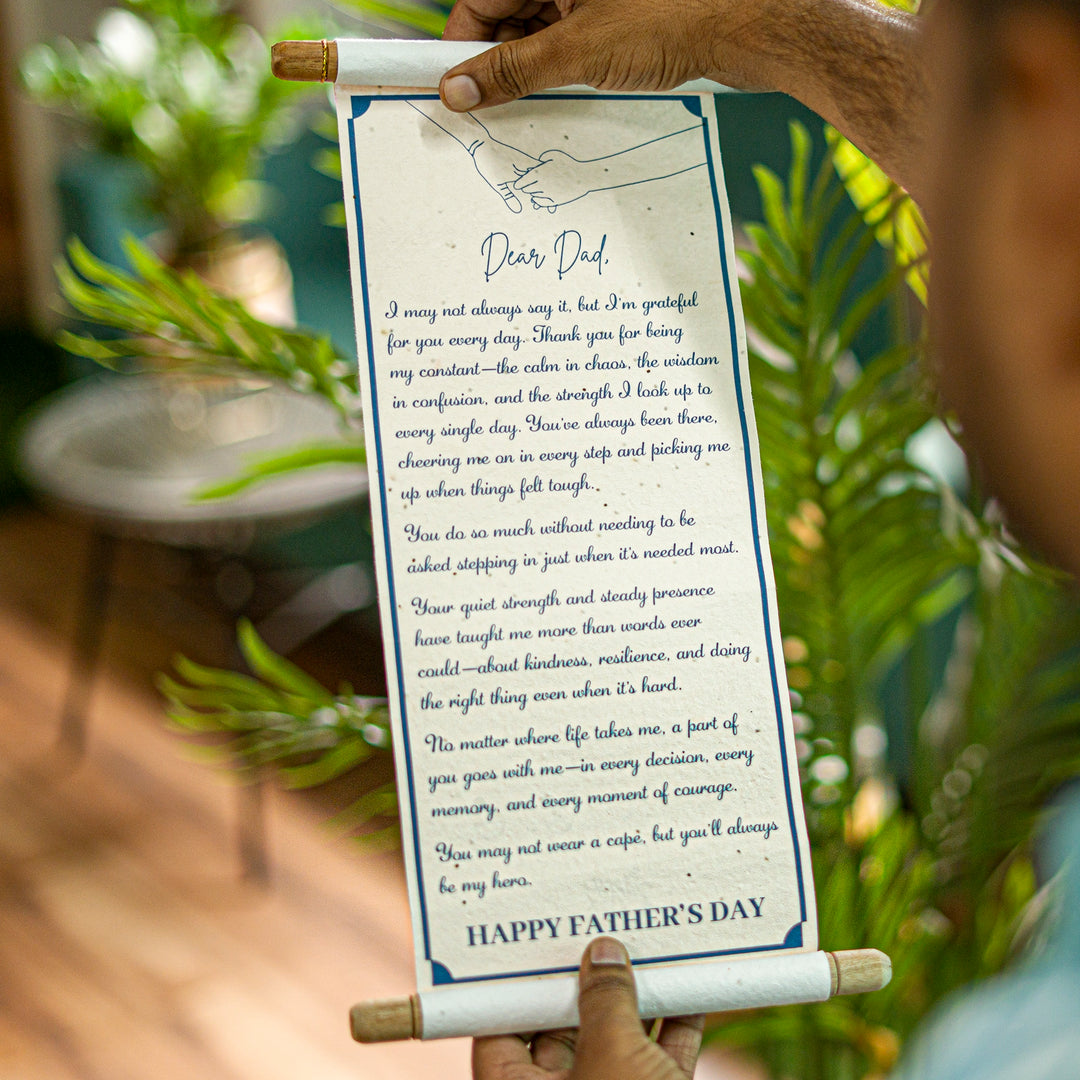 Dear Dad,
I may not always say it, but I'm grateful
for you every day. Thank you for being
my constant—the calm in chaos, the wisdom
in confusion, and the strength I look up to
every single day. You've always been there,
cheering me on in every step and picking me
up when things felt tough.
You do so much without needing to be
asked stepping in just when it's needed most.
Your quiet strength and steady presence
have taught me more than words ever
could—about kindness, resilience, and doing
the right thing even when it's hard.
No matter where life takes me, a part of
you goes with me—in every decision, every
memory, and every moment of courage.
You may not wear a cape, but you'll always
be my hero.
HAPPY FATHER'S DAY